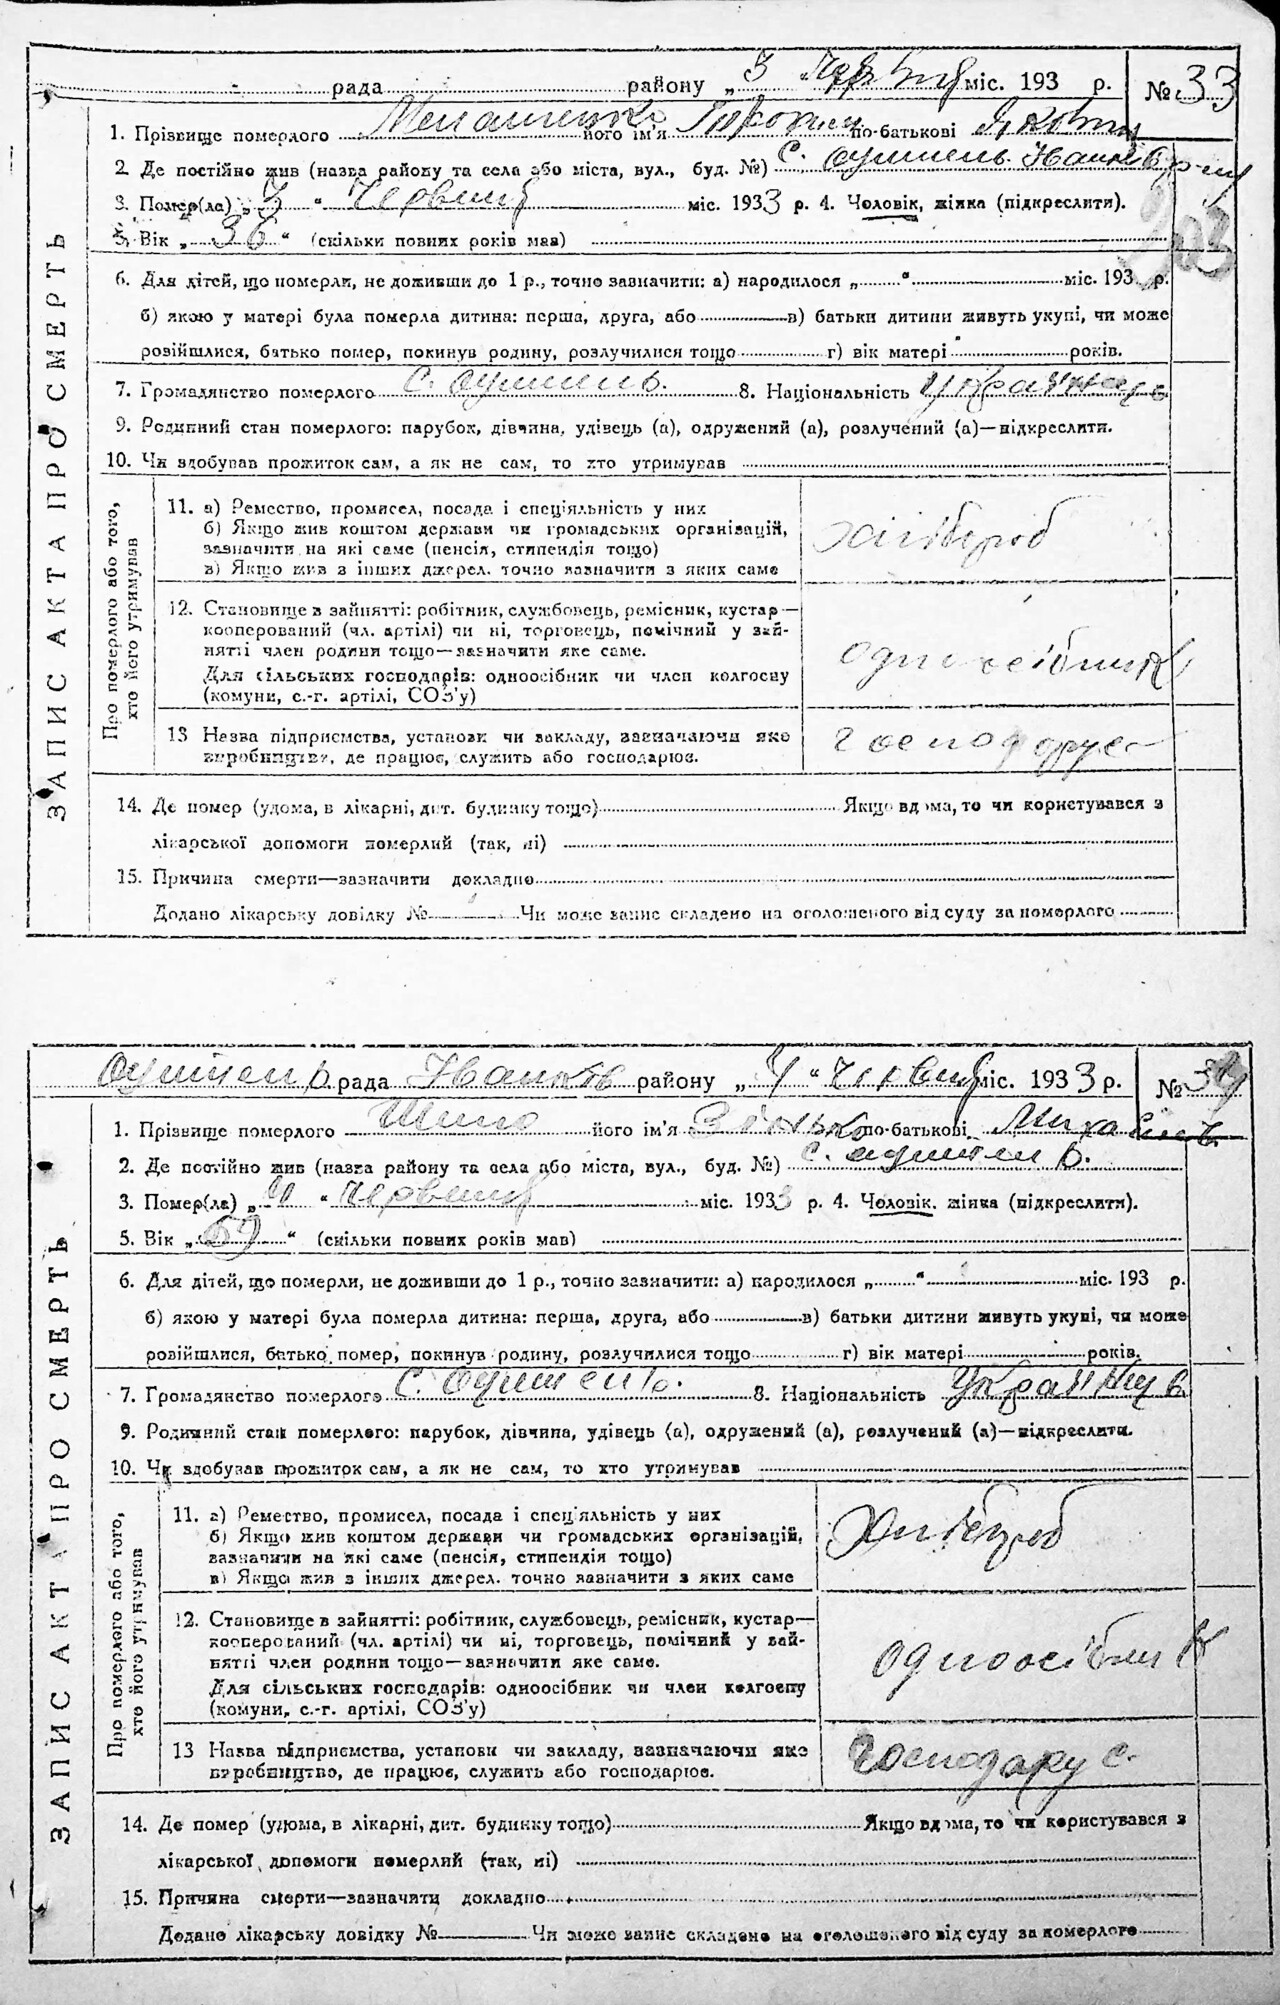 ЗАПИС АКТА ПРО СМЕРТЬ
рада району „ 3 " Червня міс. 193 р. № 33
1. Прізвище померлого його ім'я по-батькові
2. Де постійно жив (назва району та села або міста, вул., буд. №) с.
3. Помер(ла) „ 3 " Червня міс. 1933 р. 4. Чоловік, жінка (підкреслити).
5. Вік „ 36 " (скільки повних років мав)
6. Для дітей, що померли, не доживши до 1 р., точно зазначити: а) народилося „ " міс. 193 р.
б) якою у матері була померла дитина: перша, друга, або в) батьки дитини живуть укупі, чи може
розійшлися, батько помер, покинув родину, розлучилися тощо г) вік матері років.
7. Громадянство померлого с. 8. Національність Українець
9. Родинний стан померлого: парубок, дівчина, удівець (а), одружений (а), розлучений (а)—підкреслити.
10. Чи здобував прожиток сам, а як не сам, то хто утримував
Про померлого або того, хто його утримував
11. а) Ремество, промисел, посада і спеціяльність у них
б) Якщо жив коштом держави чи громадських організацій,
зазначити на які саме (пенсія, стипендія тощо)
в) Якщо жив з інших джерел, точно зазначити з яких саме
хлібороб
12. Становище в зайнятті: робітник, службовець, ремісник, кустар—
кооперований (чл. артілі) чи ні, торговець, помічний у зай-
нятті член родини тощо—зазначити яке саме.
Для сільських господарів: одноосібник чи член колгоспу
(комуни, с.-г. артілі, СОЗ'у)
одноосібник
13 Назва підприємства, установи чи закладу, зазначаючи яке
виробництво, де працює, служить або господарює.
господорує
14. Де помер (удома, в лікарні, дит. будинку тощо) Якщо вдома, то чи користувався з
лікарської допомоги померлий (так, ні)
15. Причина смерти—зазначити докладно
Додано лікарську довідку № Чи може запис складено на оголошеного від суду за померлого
ЗАПИС АКТА ПРО СМЕРТЬ
рада Іванків району „ 4 " Червня міс. 1933 р. №
1. Прізвище померлого Шило його ім'я Зінько по-батькові
2. Де постійно жив (назва району та села або міста, вул., буд. №) с.
3. Помер(ла) „ " Червня міс. 1933 р. 4. Чоловік, жінка (підкреслити).
5. Вік „ " (скільки повних років мав)
6. Для дітей, що померли, не доживши до 1 р., точно зазначити: а) народилося „ " міс. 193 р.
б) якою у матері була померла дитина: перша, друга, або в) батьки дитини живуть укупі, чи може
розійшлися, батько помер, покинув родину, розлучилися тощо г) вік матері років.
7. Громадянство померлого с. 8. Національність Українець
9. Родинний стан померлого: парубок, дівчина, удівець (а), одружений (а), розлучений (а)—підкреслити.
10. Чи здобував прожиток сам, а як не сам, то хто утримував
Про померлого або того, хто його утримував
11. а) Ремество, промисел, посада і спеціяльність у них
б) Якщо жив коштом держави чи громадських організацій,
зазначити на які саме (пенсія, стипендія тощо)
в) Якщо жив з інших джерел, точно зазначити з яких саме
Хлібороб
12. Становище в зайнятті: робітник, службовець, ремісник, кустар—
кооперований (чл. артілі) чи ні, торговець, помічний у зай-
нятті член родини тощо—зазначити яке саме.
Для сільських господарів: одноосібник чи член колгоспу
(комуни, с.-г. артілі, СОЗ'у)
одноосібник
13 Назва підприємства, установи чи закладу, зазначаючи яке
виробництво, де працює, служить або господарює.
Господарує.
14. Де помер (удома, в лікарні, дит. будинку тощо) Якщо вдома, то чи користувався з
лікарської допомоги померлий (так, ні)
15. Причина смерти—зазначити докладно
Додано лікарську довідку № Чи може запис складено на оголошеного від суду за померлого